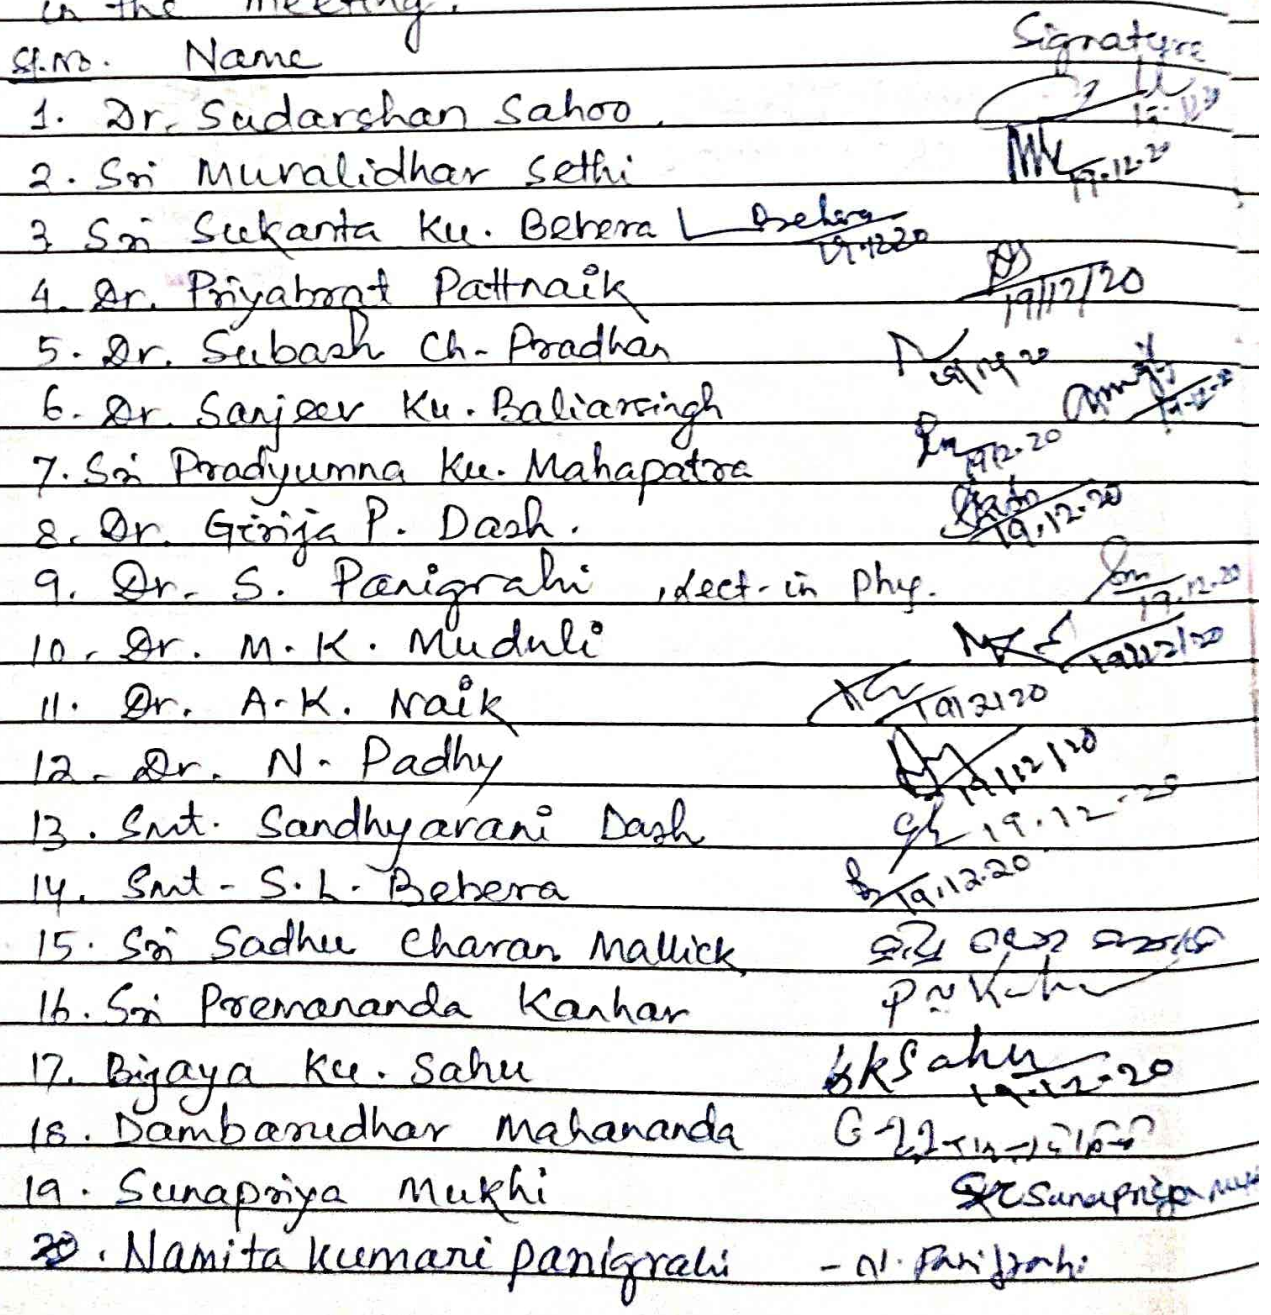 in the meeting.
Sl.No. Name Signature
1. Dr. Sudarshan Sahoo.
2. Sri Muralidhar Sethi 19.12.20
3 Sri Sukanta Ku. Behera Behera 19.12.20
4. Dr. Priyabrat Pattnaik 19/12/20
5. Dr. Subash Ch. Pradhan 19.12.20
6. Dr. Sanjeev Ku. Baliarsingh 19.12.20
7. Sri Pradyumna Ku. Mahapatra 19.12.20
8. Dr. Girija P. Dash. 19.12.20
9. Dr. S. Panigrahi , Lect. in Phy. 19.12.20
10. Dr. M. K. Muduli 19/12/20
11. Dr. A.K. Naik 19/12/20
12. Dr. N. Padhy 19/12/20
13. Smt. Sandhyarani Dash 19.12.20
14. Smt. S.L. Behera 19.12.20
15. Sri Sadhu Charan Mallick
16. Sri Premananda Kanhar
17. Bijaya Ku. Sahu bkSahu 19.12.20
18. Dambarudhar Mahananda
19. Sunapriya Mukhi Sunapriya
20. Namita Kumari Panigrahi - N. Panigrahi